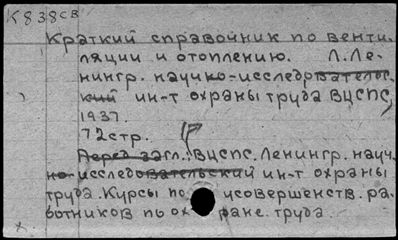 К838св
Краткий справочник по венти-
ляции и отоплению. Л. Ле-
нингр. научно-исследовательс.
кий ин-т охраны труда ВЦСПС,
1937.
72стр.
Перед загл.: ВЦСПС. Ленингр. науч.
но-исследовательский ин-т охраны
труда. Курсы по усовершенств. ра-
ботников по охране труда.